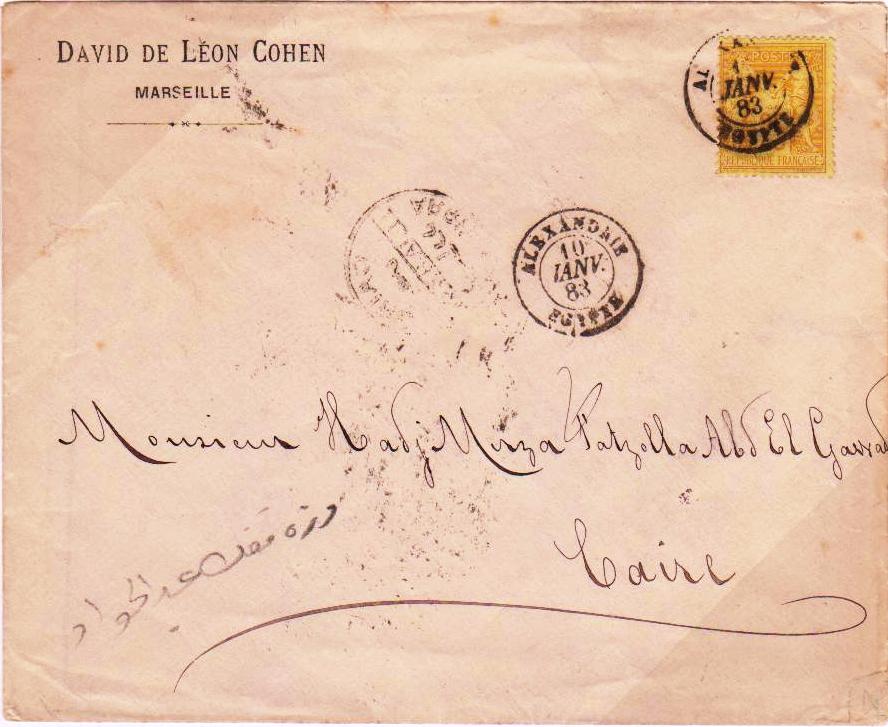 DAVID DE LÉON COHEN
MARSEILLE
POSTE
REPUBLIQUE FRANÇAISE
JANV.
83
EGYPTE
ALEXANDRIE
10
JANV.
83
EGYPTE
Monsieur Hadj Mirza Fatzolla Abd El Gavvad
Caire